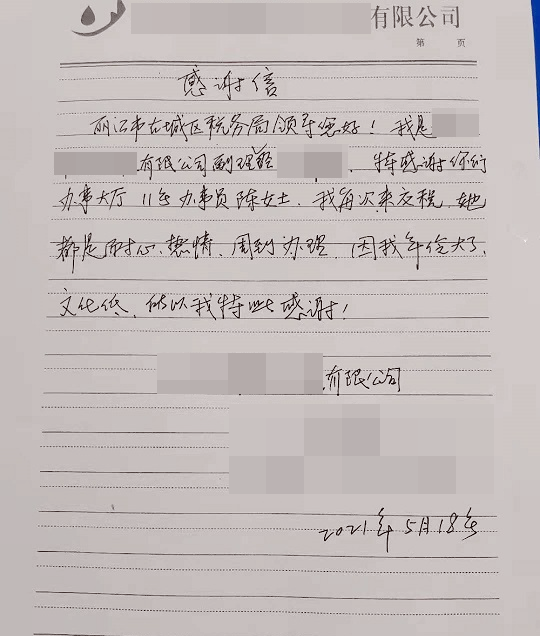 有限公司
第 页
感谢信
丽江市古城区税务局领导您好！我是
有限公司副理经、特感谢你们
办事大厅11号办事员陈女士、我每次来交税、她
都是耐心、热情、周到办理、因我年纪大了、
文化低、所以我特此感谢！
有限公司
2021年5月18号